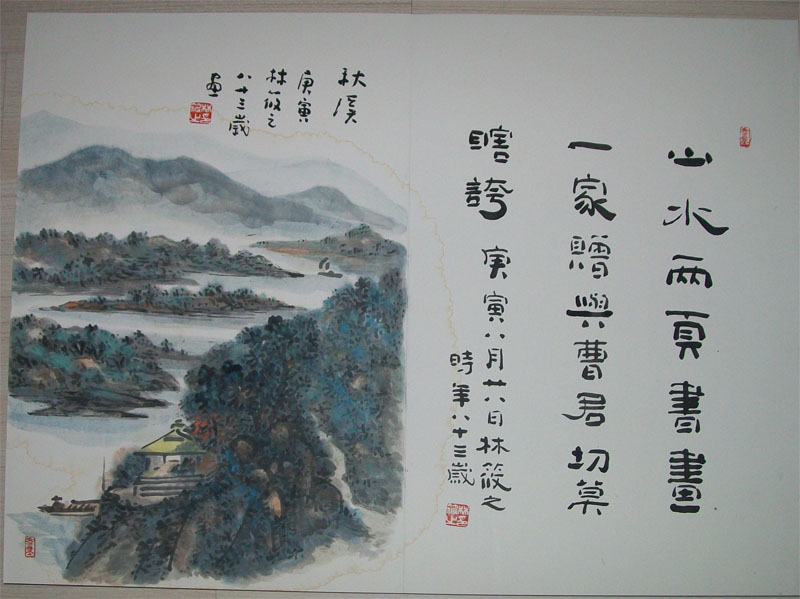 山水兩頁書畫
一家贈與曹君切莫
瞎誇
庚寅八月廿八日林筱之
時年八十三歲
秋溪
庚寅
林筱之
八十三歲
畫